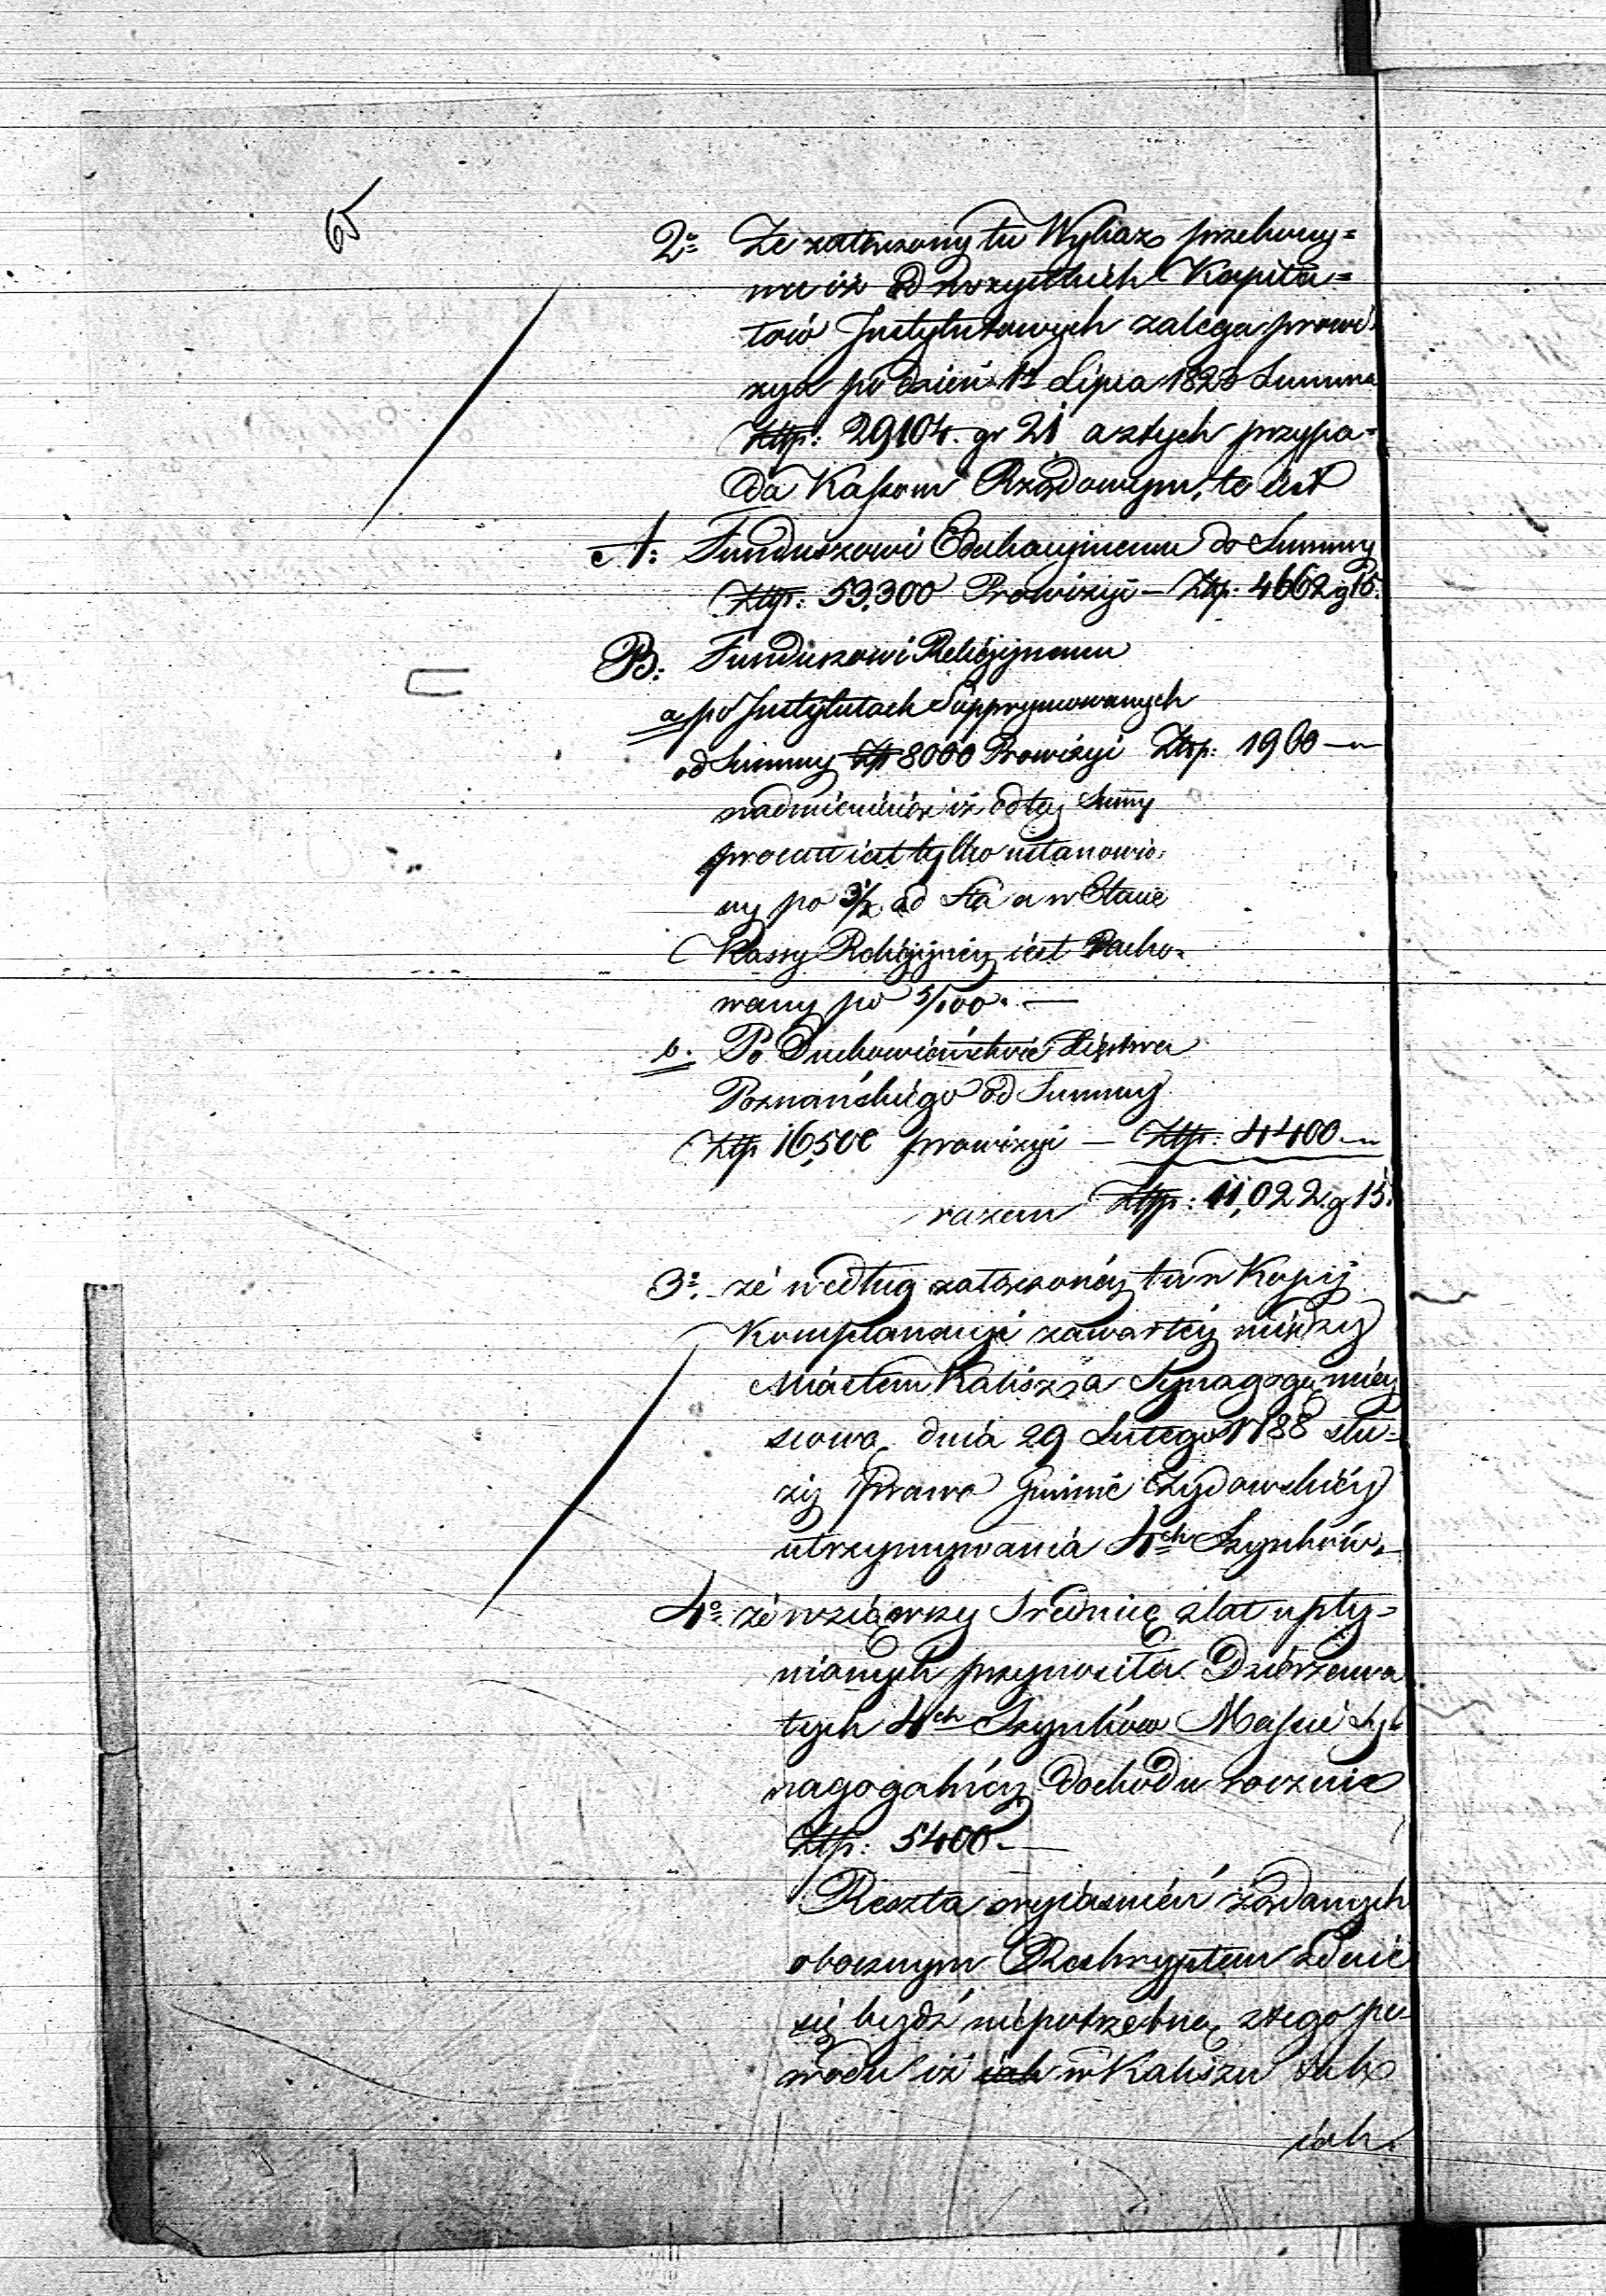 65
2o Że załączony tu Wykaz przekony=
wa iż od wszystkich Kapita=
łów Instytutowych zalega prowi
zya po dzień 1y Lipca 1823 Summa
Złtp: 29104. gr 21 a z tych przypa=
da Kassom Rządowym, to iest
A: Funduszowi Edukacyinemu do Summy
Złtp: 53,300 Prowizyi – Złtp: 4662 g 15.
B: Funduszowi Religiynemu
a po Instytutach Supprymowanych
od Summy Złp 8000 Prowizyi Złtp: 1960 —
nadmieniaiąc iż od tey Summy
procent iest tylko ustanowio:
ny po 3½ od sta a w Etacie
Kassy Religiyney iest racho=
wany po 5/100. —
b. Po Duchowieństwie Xięstwa
Poznańskiego od Summy
Złtp 16,500 prowizyi — Złtp: 4400 —
razem Złtp: 11,022. g 15.
3o że według załączonéy tu w Kopij
Komplanacyi zawartéy między
Miastem Kalisz a Synagogą miey
scową dnia 29 Lutego 1788 słu=
ży Prawo Gminie Żydowskiéy
utrzymywania 4ch Szynków.
4o że wziąwszy Srednię z lat upły=
nionych przynosiła Dzierzawa
tych 4ch Szynków Massie Sy=
nagogalnéy Dochodu rocznie
Złtp: 5400. —
Reszta wyiasnień żądanych
obocznym Reskryptem zdaie
się bydź niepotrzebną z tego po=
wodu iż iak w Kaliszu tak
iak